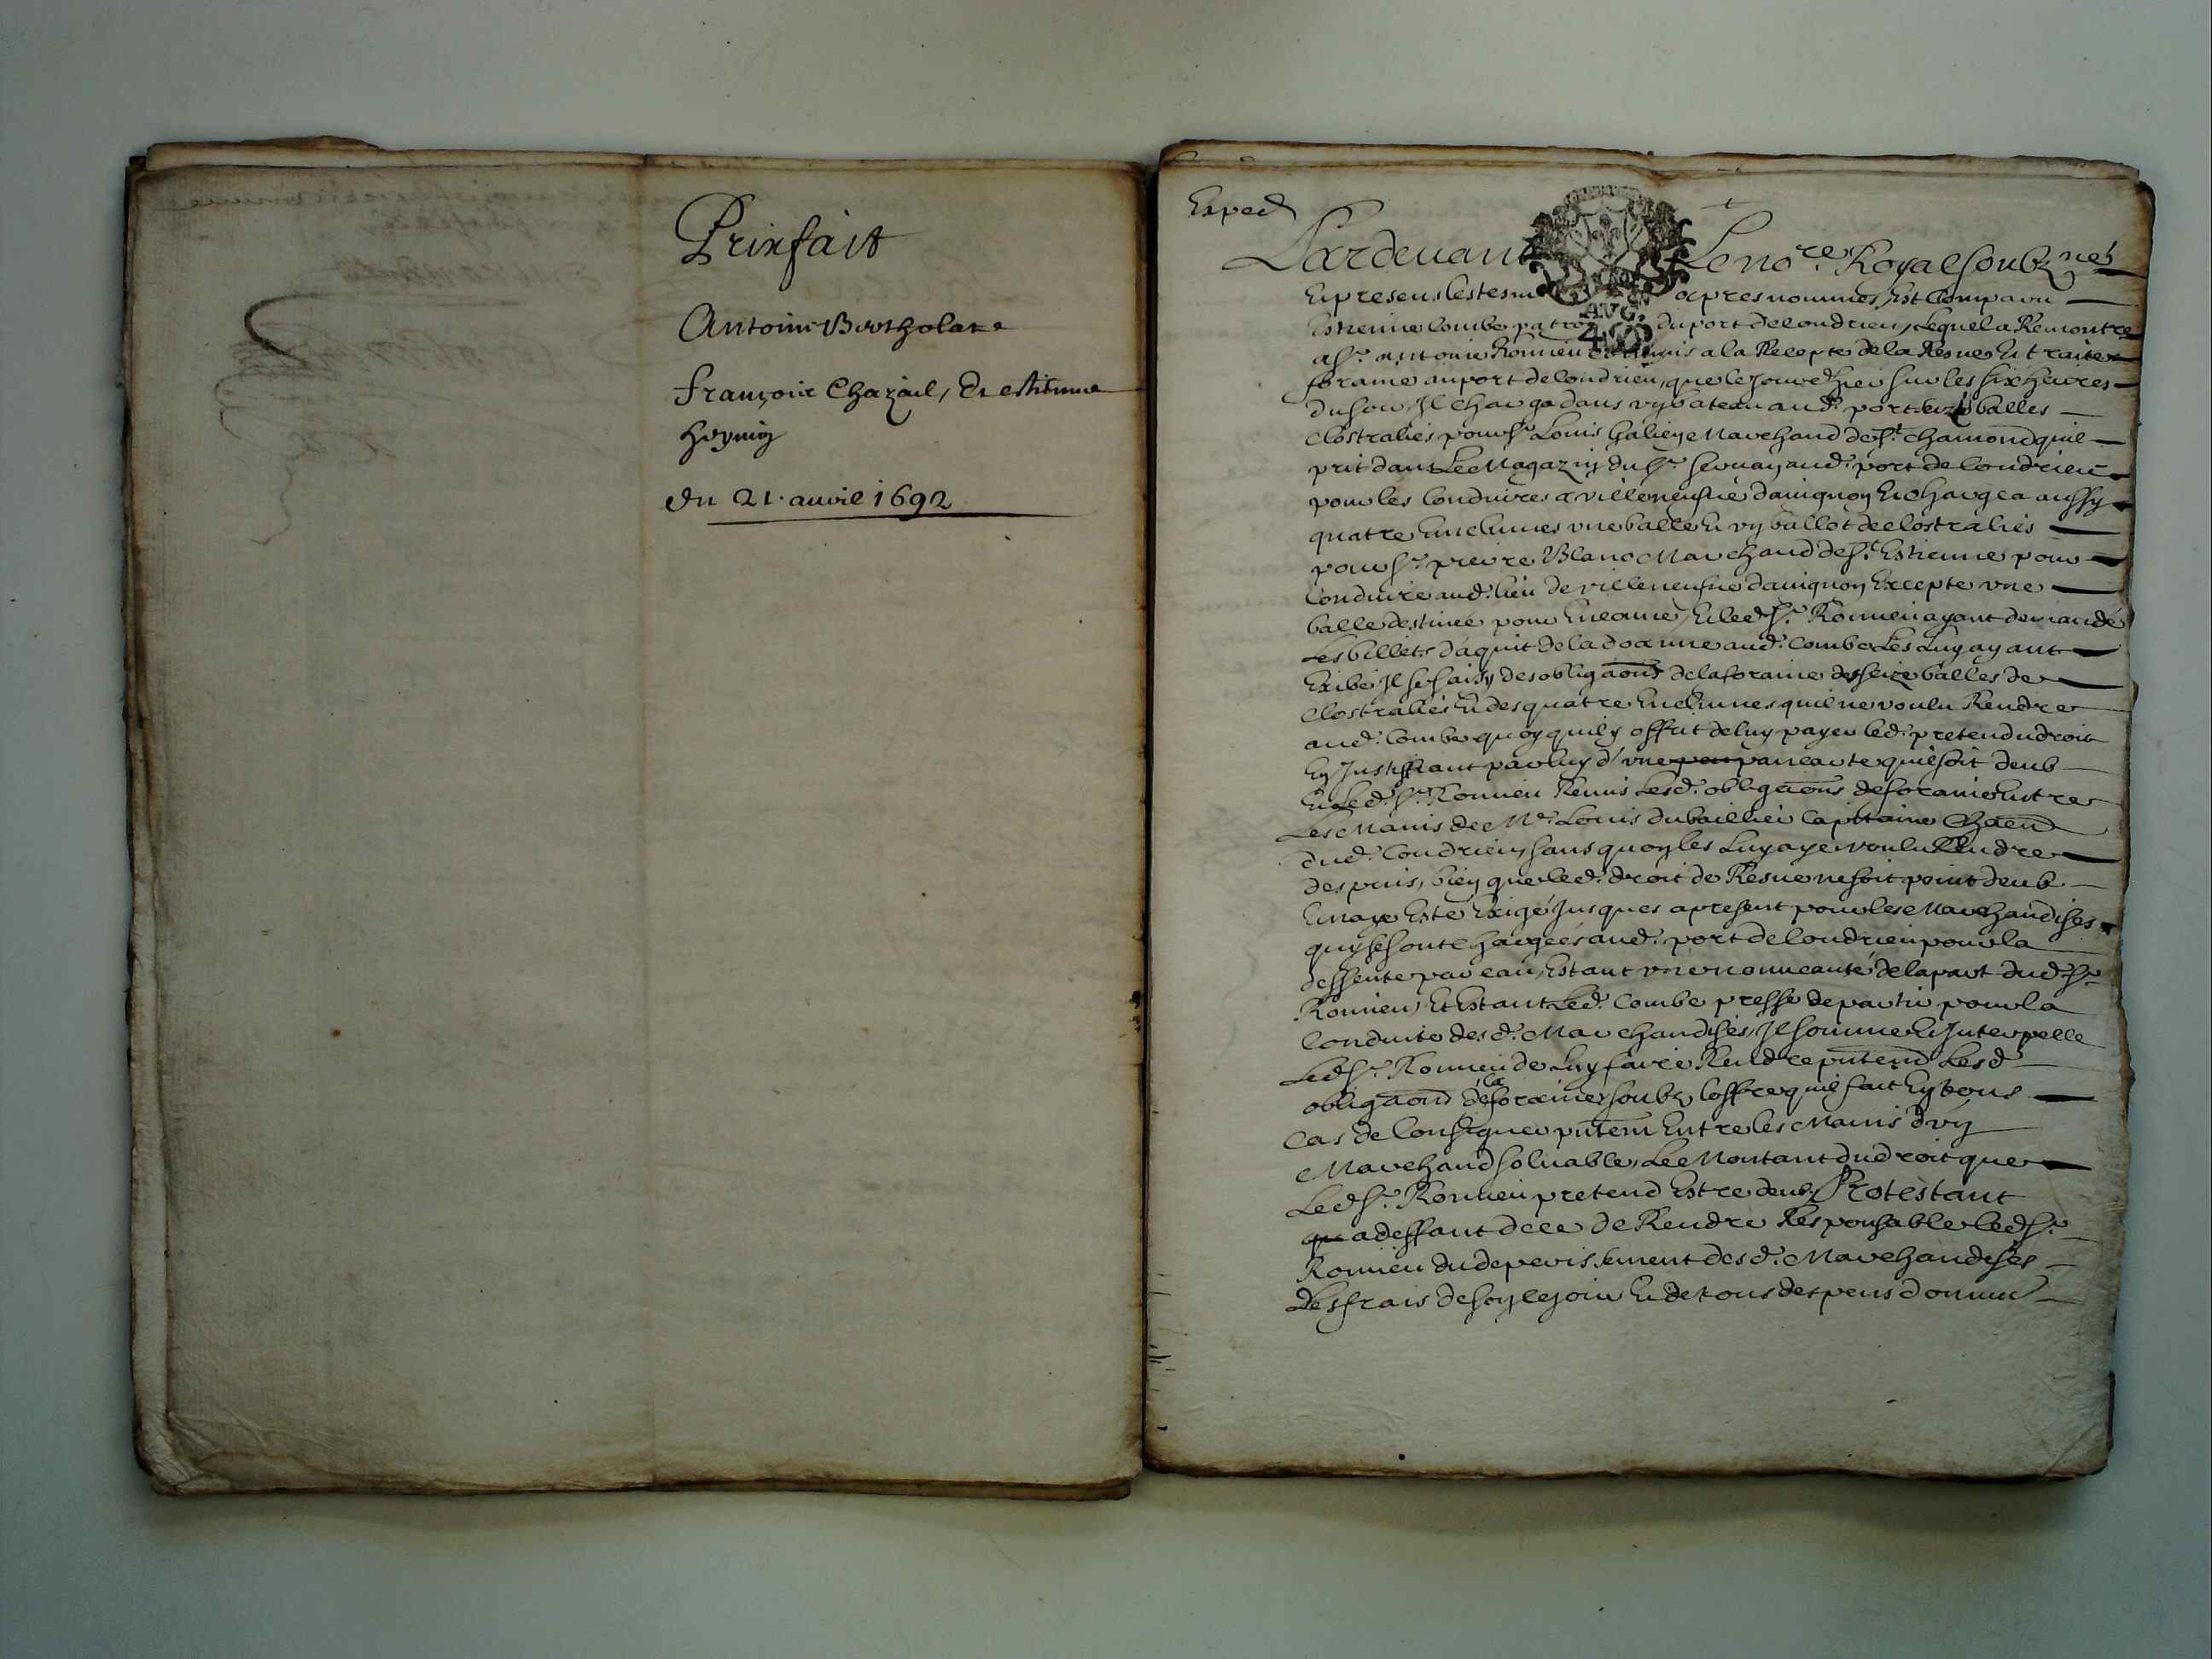 Prixfait
Antoine Bertholat
françois Chazail, Et estienne
du 21. auril 1692
Exped
Pardeuant Le no.re Royal soubz.né
En presens les tesm apres nommes, Est Comparu
Estienne Combe patron du port de Condrieu, Lequel a Remontré
a S.r antoine Romieu Commis a la Recepte de la Resue Et traitte
foraine au port de Condrieu, que le Jour d'hier sur les six heures
du soir, Il chargea dans vn bateau aud. port seize balles
Clostraliés pour S.r Louis Galieye Marchand de S.t chamond quil
prit dans Le Magazin du S.r aud. port de Condrieu
pour les Conduires a villeneufue dauignon Et chargea aussy
quatre Enclumes vne balle Et vn ballot de Clostraliés
pour S.r pierre Blanc Marchand de S.t Estienne pour
Conduire aud. lieu de villeneufue dauignon Excepte vne
balle destinée pour Et led. S.r Romieu ayant demandé
Les billets d'aquit de la doanne aud. Combe Les Luy ayant
Exibé Il se saisy des obligaons de la foraine des seize balles de
Clostraliés Et des quatre Enclumes quil ne voulu Rendre
aud. Combe quoy quil offrit de luy payer led. pretendu droit
En Justiffiant par luy d'vne pancarte quil soit deub
Et Led. S.r Romieu Remis Lesd. obligaons de foraine Entre
Les Mains de M.e Louis dubaillier Capitaine Chaten
dud. Condrieu, sans quon les Luy aye voulu Rendre
despuis, bien que led. droit de Resue ne soit point deub
Et naye Esté Exigé Jusques a present pour les Marchandises
quy se sont chargées aud. port de Condrieu pour la
dessente par eau, Estant vne nouueauté de la part dud. S.r
Romieu, Et Estant Led. Combe pressé de partir pour la
Conduite desd. Marchandises, Il somme Et Interpelle
Led. S.r Romieu de Luy faire Rendre pntem Lesd.
obligaons de la foraine, soubz Loffre quil fait En tous
Cas de Consigner pntem Entre les Mains d'vn
Marchand soluable, Le Montant du droit que
Led. S.r Romieu pretend Estre deub, Protestant
a deffaut de ce de Rendre Responsable led. S.r
Romieu du deperissement desd. Marchandises
Des frais de sejour Et de tous despens domm